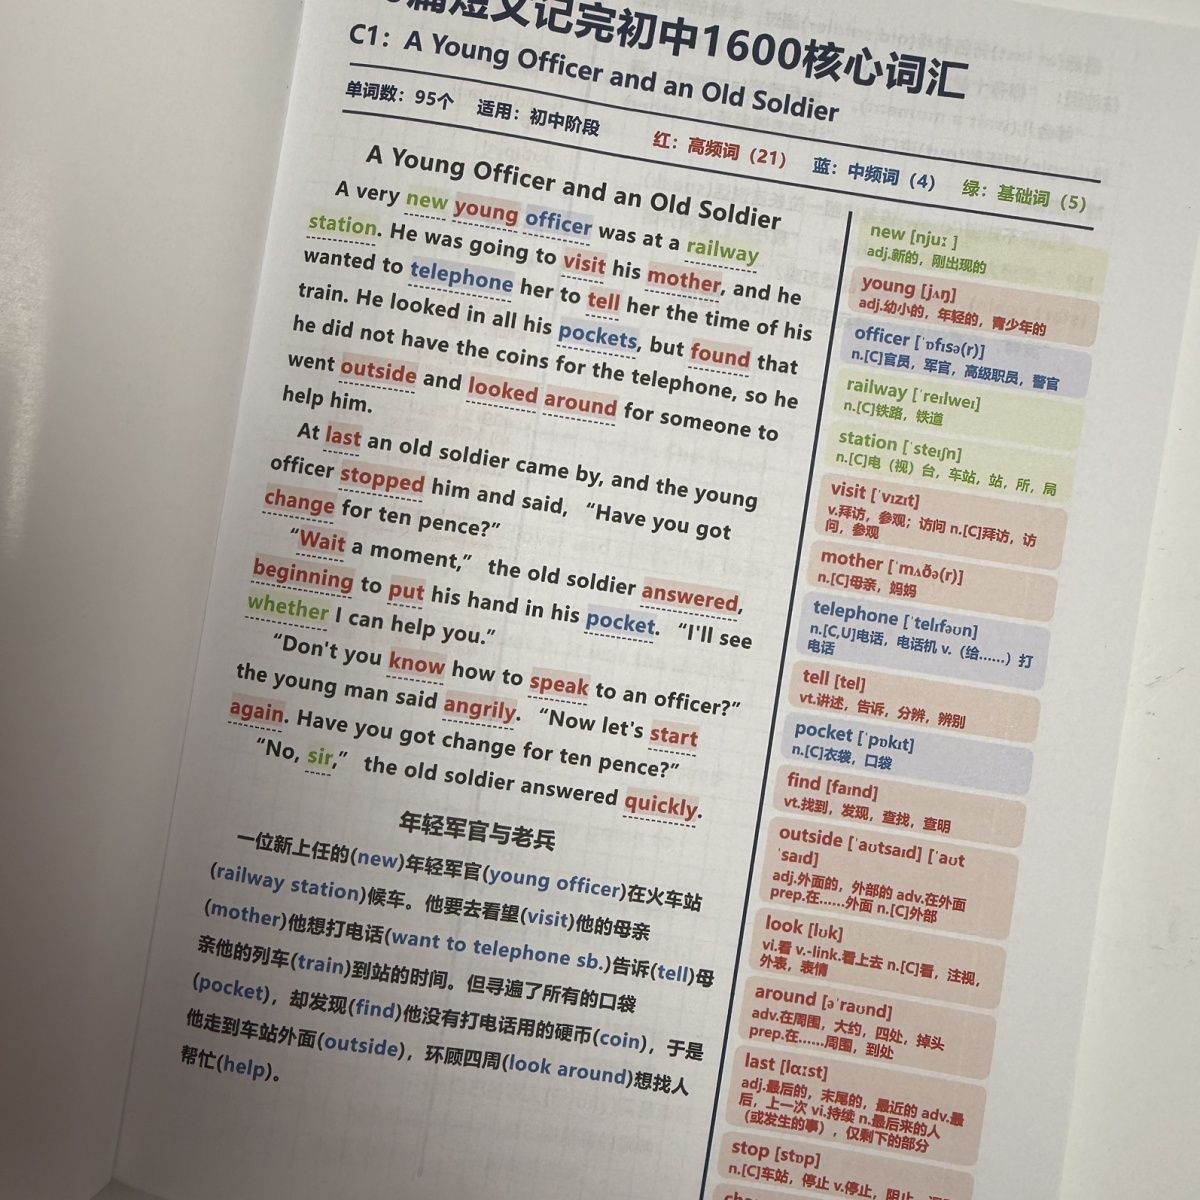 篇短文记完初中1600核心词汇
C1：A Young Officer and an Old Soldier
单词数：95个 适用：初中阶段 红：高频词（21） 蓝：中频词（4） 绿：基础词（5）
A Young Officer and an Old Soldier
A very new young officer was at a railway
station. He was going to visit his mother, and he
wanted to telephone her to tell her the time of his
train. He looked in all his pockets, but found that
he did not have the coins for the telephone, so he
went outside and looked around for someone to
help him.
At last an old soldier came by, and the young
officer stopped him and said, “Have you got
change for ten pence?”
“Wait a moment,” the old soldier answered,
beginning to put his hand in his pocket. “I'll see
whether I can help you.”
“Don't you know how to speak to an officer?”
the young man said angrily. “Now let's start
again. Have you got change for ten pence?”
“No, sir,” the old soldier answered quickly.
年轻军官与老兵
一位新上任的(new)年轻军官(young officer)在火车站
(railway station)候车。他要去看望(visit)他的母亲
(mother)他想打电话(want to telephone sb.)告诉(tell)母
亲他的列车(train)到站的时间。但寻遍了所有的口袋
(pocket)，却发现(find)他没有打电话用的硬币(coin)，于是
他走到车站外面(outside)，环顾四周(look around)想找人
帮忙(help)。
new [njuː ]
adj.新的，刚出现的
young [jʌŋ]
adj.幼小的，年轻的，青少年的
officer [ˈɒfɪsə(r)]
n.[C]官员，军官，高级职员，警官
railway [ˈreɪlweɪ]
n.[C]铁路，铁道
station [ˈsteɪʃn]
n.[C]电（视）台，车站，站，所，局
visit [ˈvɪzɪt]
v.拜访，参观；访问 n.[C]拜访，访
问，参观
mother [ˈmʌðə(r)]
n.[C]母亲，妈妈
telephone [ˈtelɪfəʊn]
n.[C,U]电话，电话机 v.（给……）打
电话
tell [tel]
vt.讲述，告诉，分辨，辨别
pocket [ˈpɒkɪt]
n.[C]衣袋，口袋
find [faɪnd]
vt.找到，发现，查找，查明
outside [ˈaʊtsaɪd] [ˈaʊt
ˈsaɪd]
adj.外面的，外部的 adv.在外面
prep.在……外面 n.[C]外部
look [lʊk]
vi.看 v.-link.看上去 n.[C]看，注视，
外表，表情
around [əˈraʊnd]
adv.在周围，大约，四处，掉头
prep.在……周围，到处
last [lɑːst]
adj.最后的，末尾的，最近的 adv.最
后，上一次 vi.持续 n.最后来的人
（或发生的事），仅剩下的部分
stop [stɒp]
n.[C]车站，停止 v.停止，阻止，